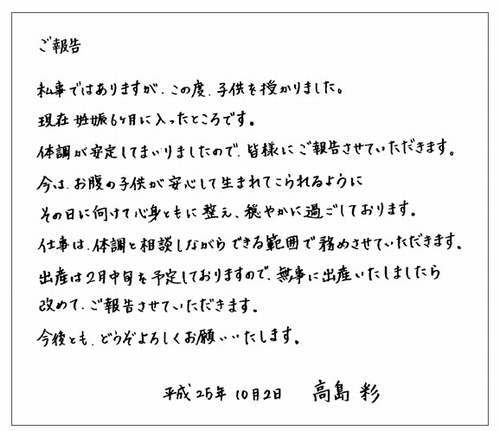 ご報告
私事ではありますが、この度、子供を授かりました。
現在妊娠6ヶ月に入ったところです。
体調が安定してまいりましたので、皆様にご報告させていただきます。
今は、お腹の子供が安心して生まれてこられるように
その日に向けて心身ともに整え、穏やかに過ごしております。
仕事は、体調と相談しながらできる範囲で務めさせていただきます。
出産は2月中旬を予定しておりますので、無事に出産いたしましたら
改めて、ご報告させていただきます。
今後とも、どうぞよろしくお願いいたします。
平成25年10月2日 高島彩